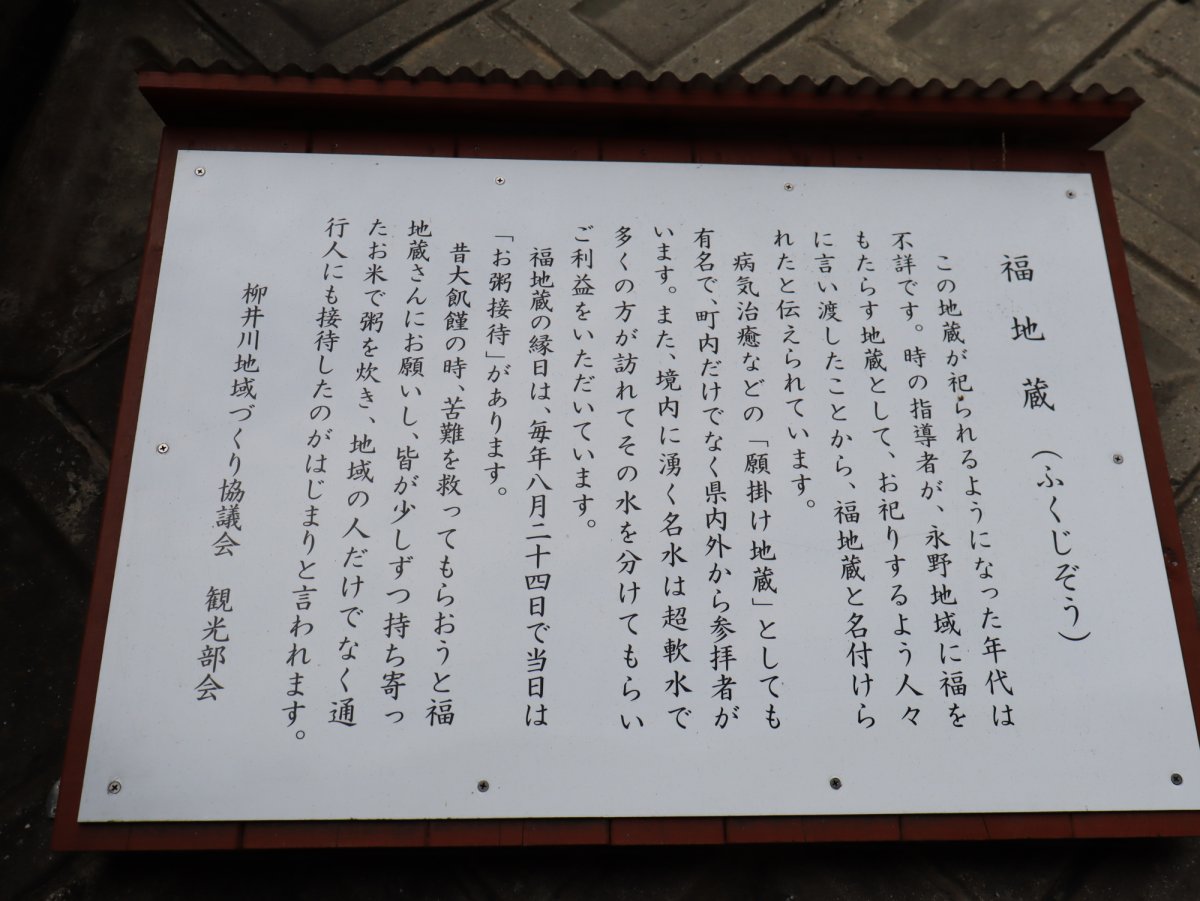 福地蔵（ふくじぞう）
この地蔵が祀られるようになった年代は
不詳です。時の指導者が、永野地域に福を
もたらす地蔵として、お祀りするよう人々
に言い渡したことから、福地蔵と名付けら
れたと伝えられています。
病気治癒などの「願掛け地蔵」としても
有名で、町内だけでなく県内外から参拝者が
います。また、境内に湧く名水は超軟水で
多くの方が訪れてその水を分けてもらい
ご利益をいただいています。
福地蔵の縁日は、毎年八月二十四日で当日は
「お粥接待」があります。
昔大飢饉の時、苦難を救ってもらおうと福
地蔵さんにお願いし、皆が少しずつ持ち寄っ
たお米で粥を炊き、地域の人だけでなく通
行人にも接待したのがはじまりと言われます。
柳井川地域づくり協議会　観光部会